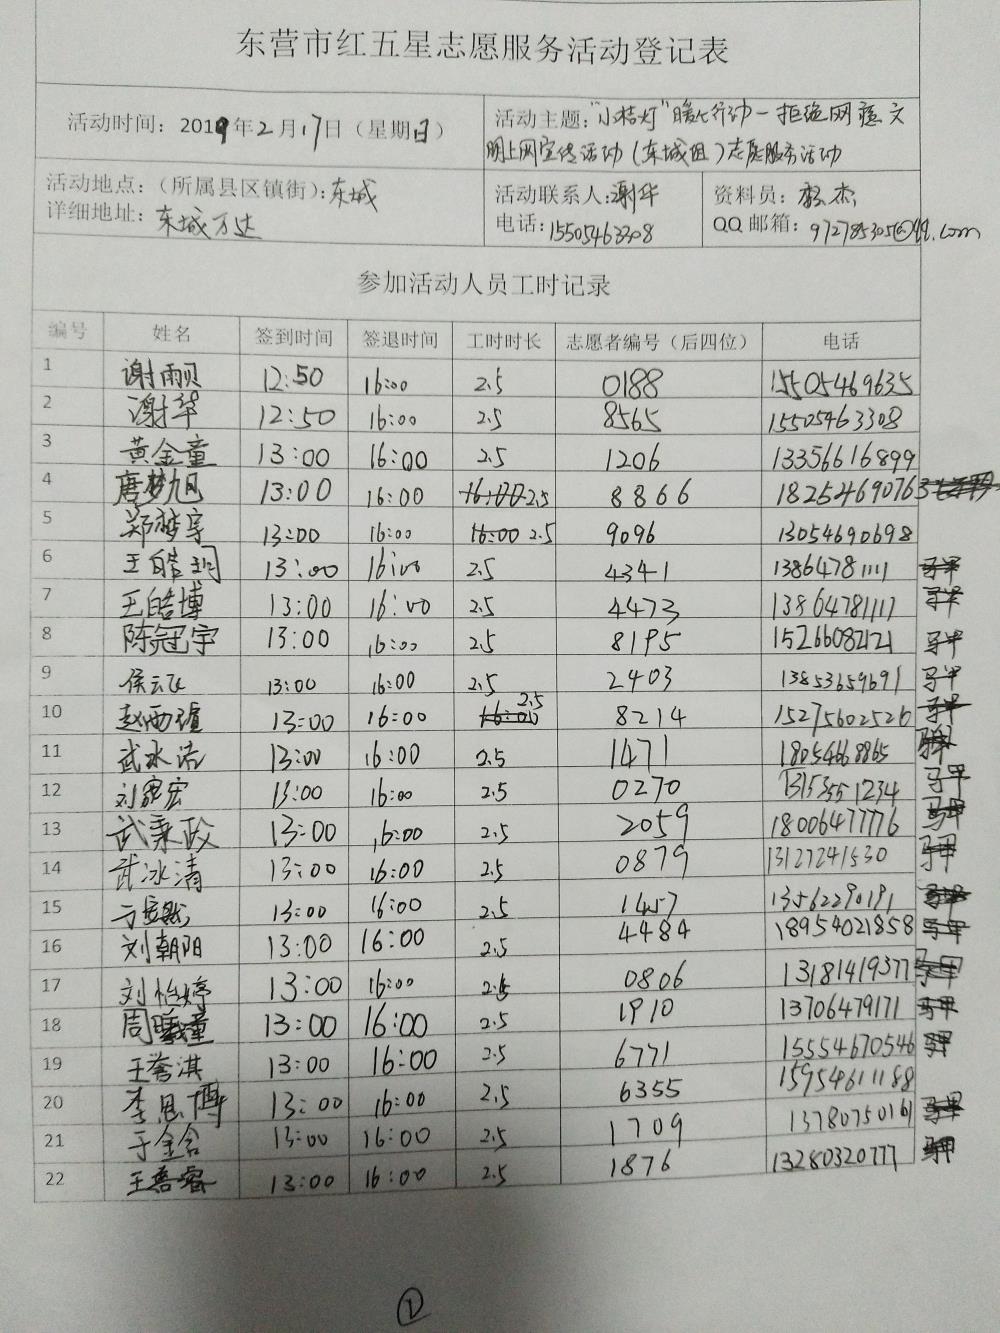 东营市红五星志愿服务活动登记表
活动时间：2019年2月17日（星期日）
活动主题："小桔灯"暖心行动-拒绝网瘾文
明上网宣传活动（东城组）志愿服务活动
活动地点：（所属县区镇街）：东城
详细地址：东城万达
活动联系人：谢华
电话：15505463308
资料员：杰
QQ邮箱：972785305@qq.com
参加活动人员工时记录
编号 姓名 签到时间 签退时间 工时时长 志愿者编号（后四位） 电话
1 谢丽贝 12:50 16:00 2.5 0188 15505469635
2 谢华 12:50 16:00 2.5 8565 15505463308
3 黄金童 13:00 16:00 2.5 1206 13356616899
4 唐梦旭 13:00 16:00 2.5 8866 18254690763
5 郑梦宇 13:00 16:00 2.5 9096 13054690698
6 王皓玥 13:00 16:00 2.5 4341 13864781111 马甲
7 王皓博 13:00 16:00 2.5 4473 13864781117 马甲
8 陈冠宇 13:00 16:00 2.5 8195 15266082121 马甲
9 侯云飞 13:00 16:00 2.5 2403 13853659691 马甲
10 赵雨瑄 13:00 16:00 2.5 8214 15275602526 马甲
11 武冰洁 13:00 16:00 2.5 1471 18054668865
12 刘家宏 13:00 16:00 2.5 0270 13153551234 马甲
13 武秉政 13:00 16:00 2.5 2059 18006477776 马甲
14 武冰清 13:00 16:00 2.5 0879 13127241530 马甲
15 13:00 16:00 2.5 1457 13562290191 马甲
16 刘朝阳 13:00 16:00 2.5 4484 18954021858 马甲
17 刘怡婷 13:00 16:00 2.5 0806 13181419377 马甲
18 周曦童 13:00 16:00 2.5 1910 13706479171 马甲
19 王誉淇 13:00 16:00 2.5 6771 15554670546 马甲
20 李恩博 13:00 16:00 2.5 6355 15954611188
21 于金含 13:00 16:00 2.5 1709 13780750161 马甲
22 王睿 13:00 16:00 2.5 1876 13280320777 马甲
①